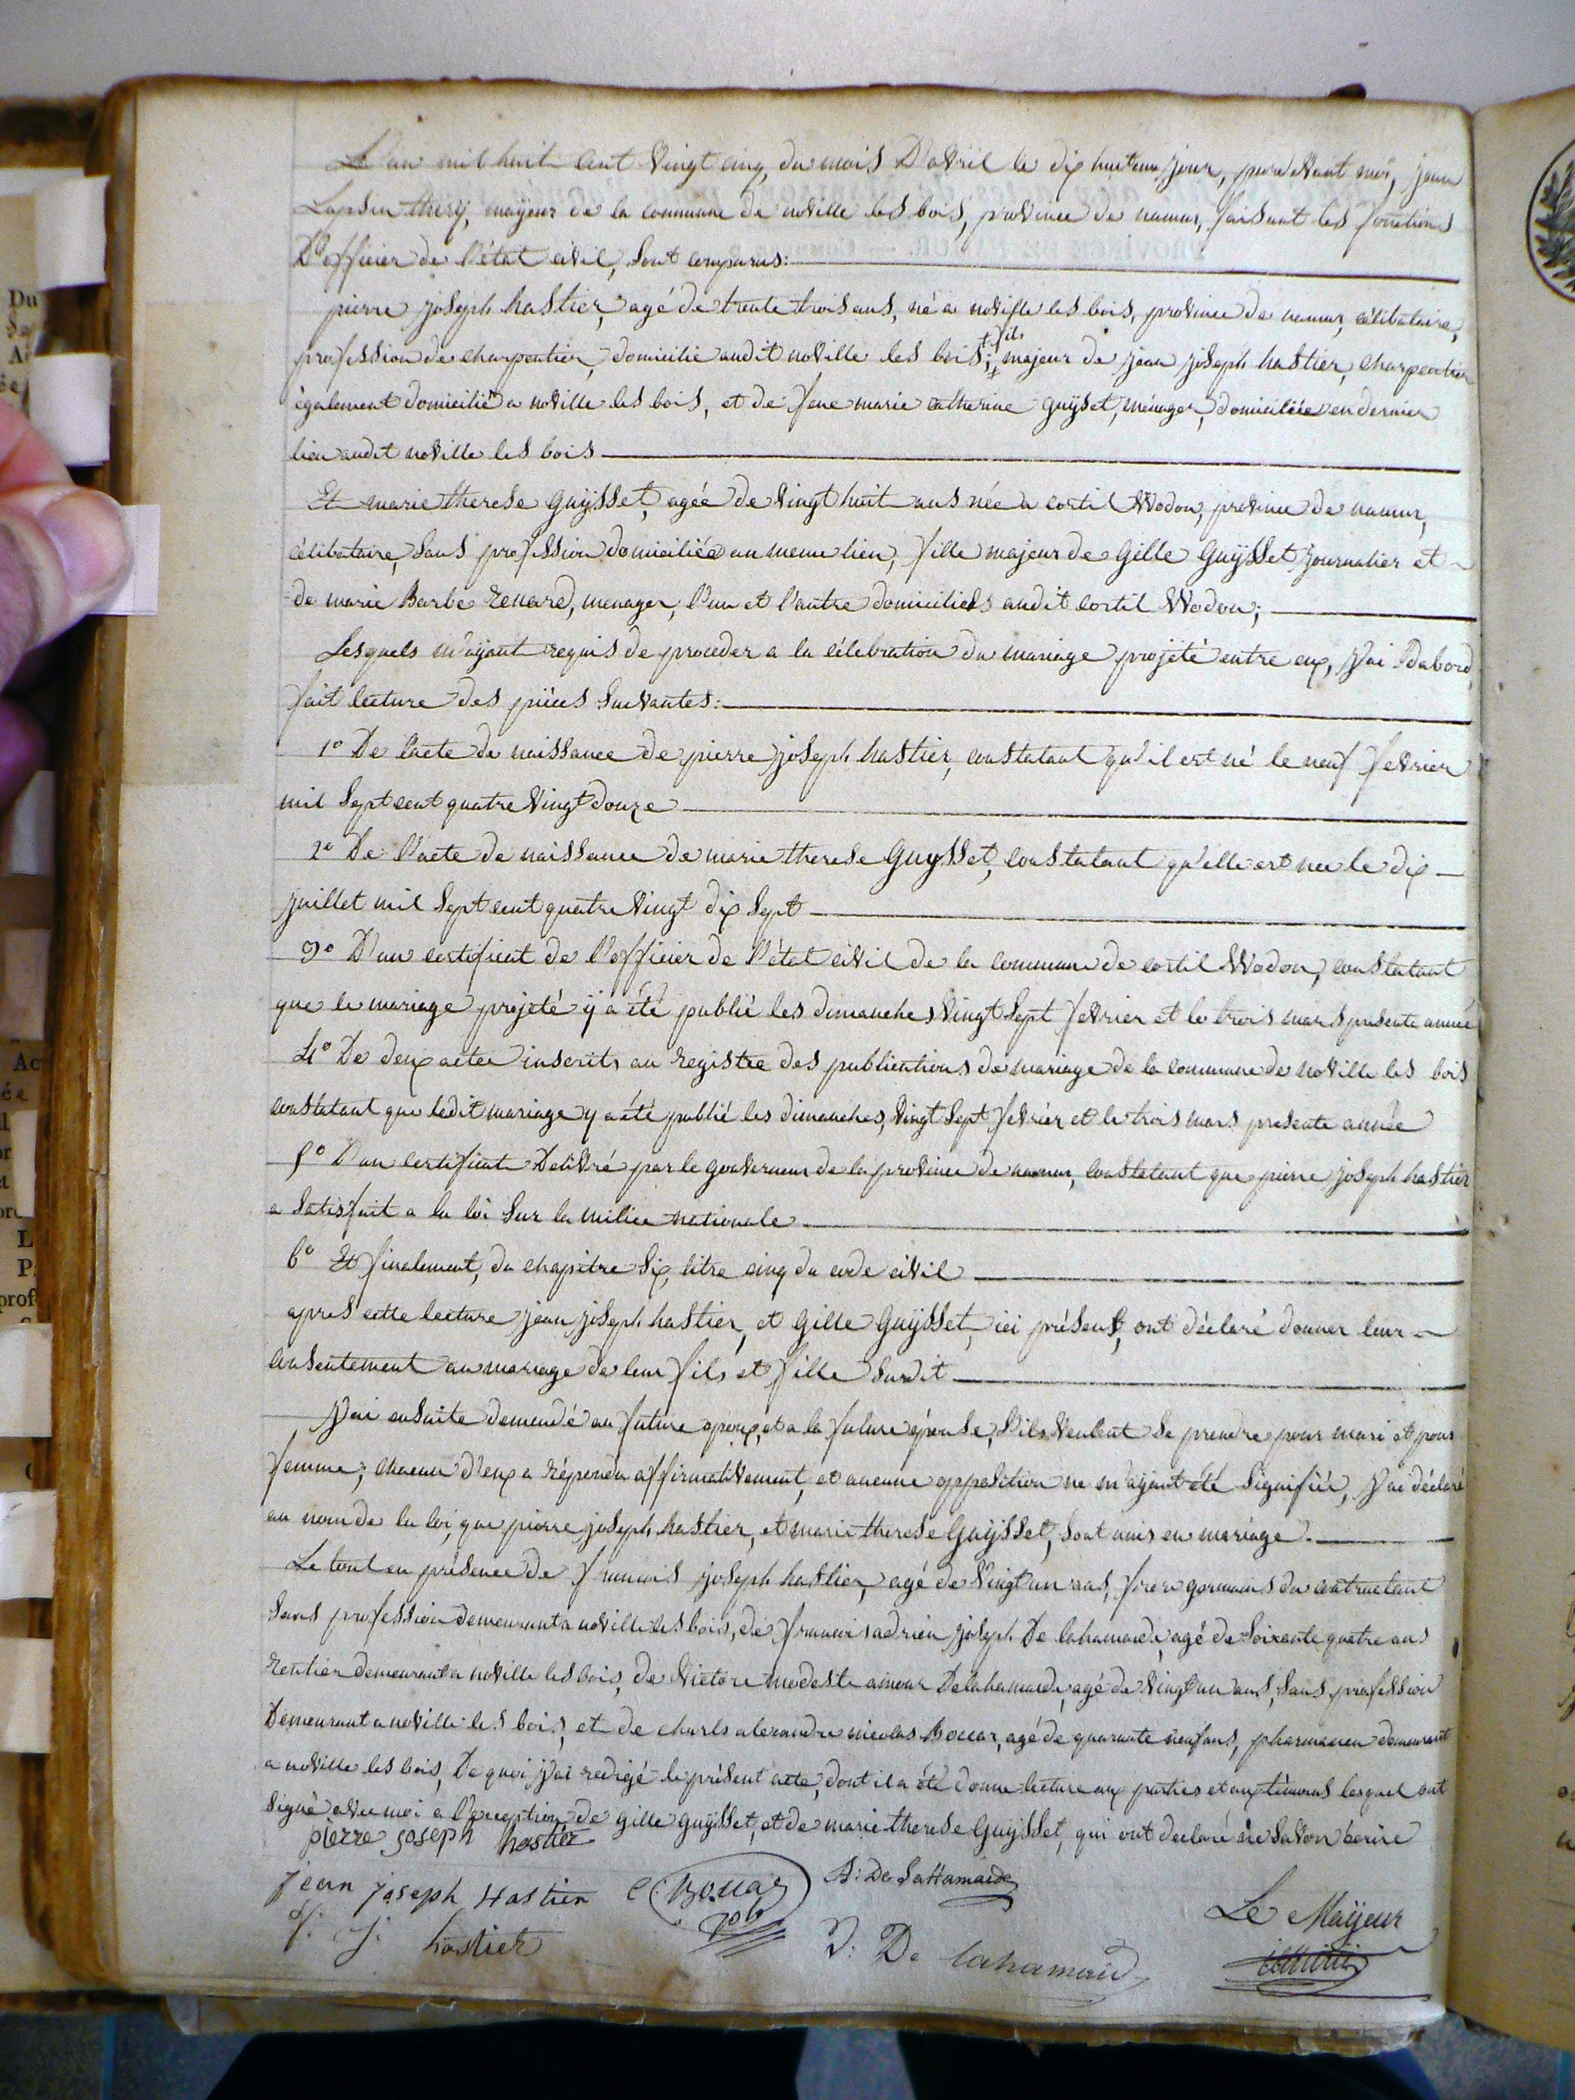 L'an mil huit cent vingt cinq, du mois D'avril le dix huitieme jour, pardevant moi, jean
Lapsin thiry, maÿeur de la commune de noville les bois, province de namur, faisant les fonctions
D'officier de l'état civil, sont comparus:
pierre joseph hastier, agé de trente trois ans, né a noville les bois, province de namur, célibataire,
profession de charpentier, domicilié audit noville les bois; fils majeur de jean joseph hastier, charpentier
également domicilié a noville les bois, et de feue marie catherine guÿset, ménager, domiciliée en dernier
lieu audit noville les bois
Et marie therese guÿsset, agée de vingt huit ans née a cortil Wodon, province de namur,
célibataire, sans profession domiciliée au meme lieu, fille majeur de gille guÿsset journalier et
de marie Barbe renard, menager, l'un et l'autre domiciliés audit cortil Wodon;
Lesquels m'aÿant requis de proceder a la célebration du mariage projeté entre eux, j'ai d'abord
fait lecture des pièces suivantes:
1º De l'acte de naissance de pierre joseph hastier, constatant qu'il est né le neuf fevrier
mil sept cent quatre vingt douze
2º De l'acte de naissance de marie therese guÿsset, constatant qu'elle est nee le dix
juillet mil sept cent quatre vingt dix sept
3º D'un certificat de l'officier de l'état civil de la commune de cortil Wodon, constatant
que le mariage projeté ÿ a été publié les dimanches vingt sept fevrier et le trois mars presente année
4º De deux actes inscrits au registre des publications de mariage de la commune de noville les bois
constatant que ledit mariage y a été publié les dimanches, vingt sept fevrier et le trois mars presente année
5º D'un certificat Delivré par le gouverneur de la province de namur, constatant que pierre joseph hastier
a satisfait a la loi sur la milice nationale
6º Et finalement, du chapitre six, titre cinq du code civil
apres cette lecture jean joseph hastier, et gille guÿsset, ici présent, ont déclaré donner leur
consentement au mariage de leur fils et fille susdit
j'ai ensuite demandé au future epoux, et a la future épouse, s'ils veulent se prendre pour mari et pour
femme; chacun d'eux a répondu affirmativement, et aucune opposition ne m'aÿant été signifiée, j'ai déclaré
au nom de la loi, que pierre joseph hastier, et marie therese guÿsset, sont unis en mariage.
Le tout en présence de francois joseph hastier, agé de vingt un ans, frere germains du contractant
sans profession demeurant a noville les bois, de francois adrien joseph De lahamaide, agé de soixante quatre ans
rentier demeurant a noville les bois, de victore modeste aimour Delahamaide, agé de vingt un ans, sans profession
Demeurant a noville les bois, et de charls alexandre nicolas Bouar, agé de quarante neuf ans, pharmacien demeurant
a noville les bois, De quoi j'ai redigé le présent acte, dont il a été donne lecture aux parties et aux témoins lesquel ont
signé avec moi a l'exception de gille guÿsset, et de marie therese guÿsset, qui ont declaré ne savoir écrire
pierre joseph hastier
jean joseph Hastier C Bouar A: De LaHamaide
f. j. hastier V: De lahamaide Le Maÿeur